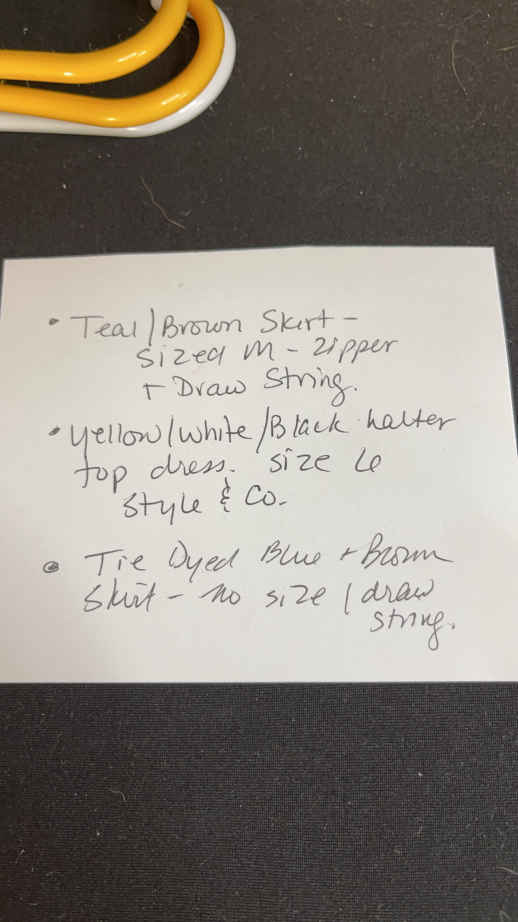 • Teal/Brown Skirt -
sized M - zipper
+ Draw String.
• Yellow/White/Black halter
top dress. size 6
Style & Co.
• Tie Dyed Blue + Brown
Skirt - no size / draw
string.